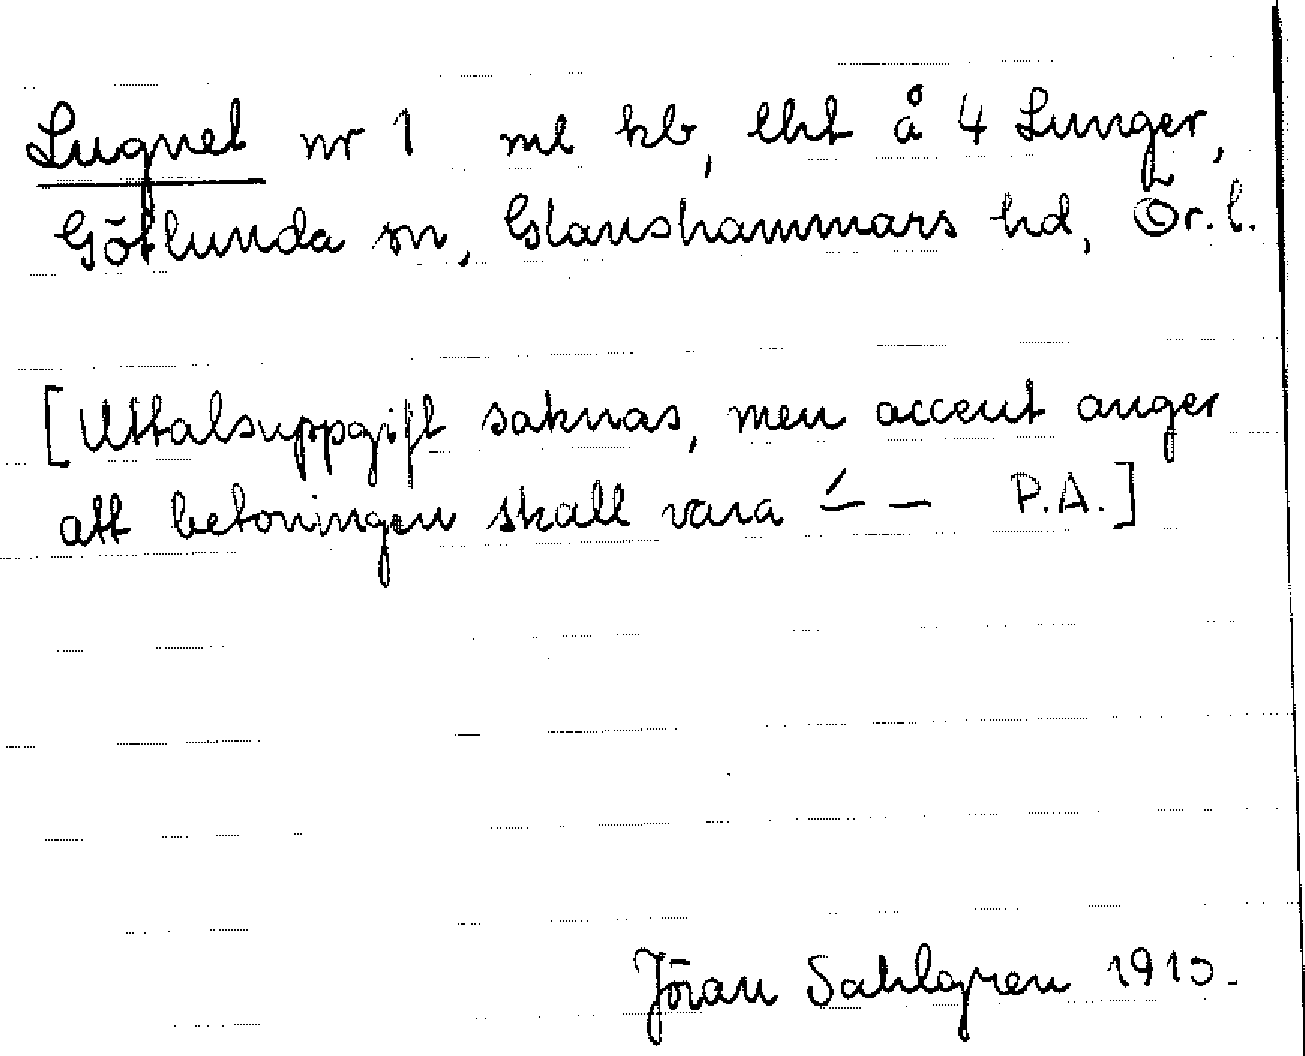 Lugnet nr 1 ml kb, lht å 4 Lunger,
Götlunda sn, Glanshammars hd, Ör. l.
[Uttalsuppgift saknas, men accent anger
att betoningen skall vara –́ – P.A.]
Jöran Sahlgren 1915.